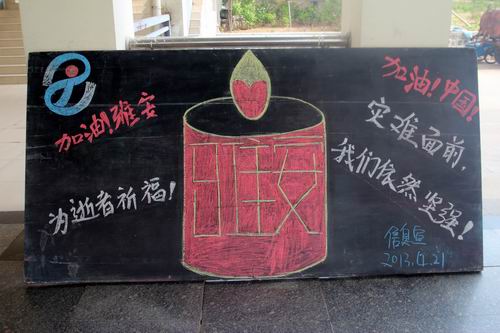 加油!雅安
为逝者祈福!
雅安
加油!中国!
灾难面前,
我们依然坚强!
信息宣
2013.4.21